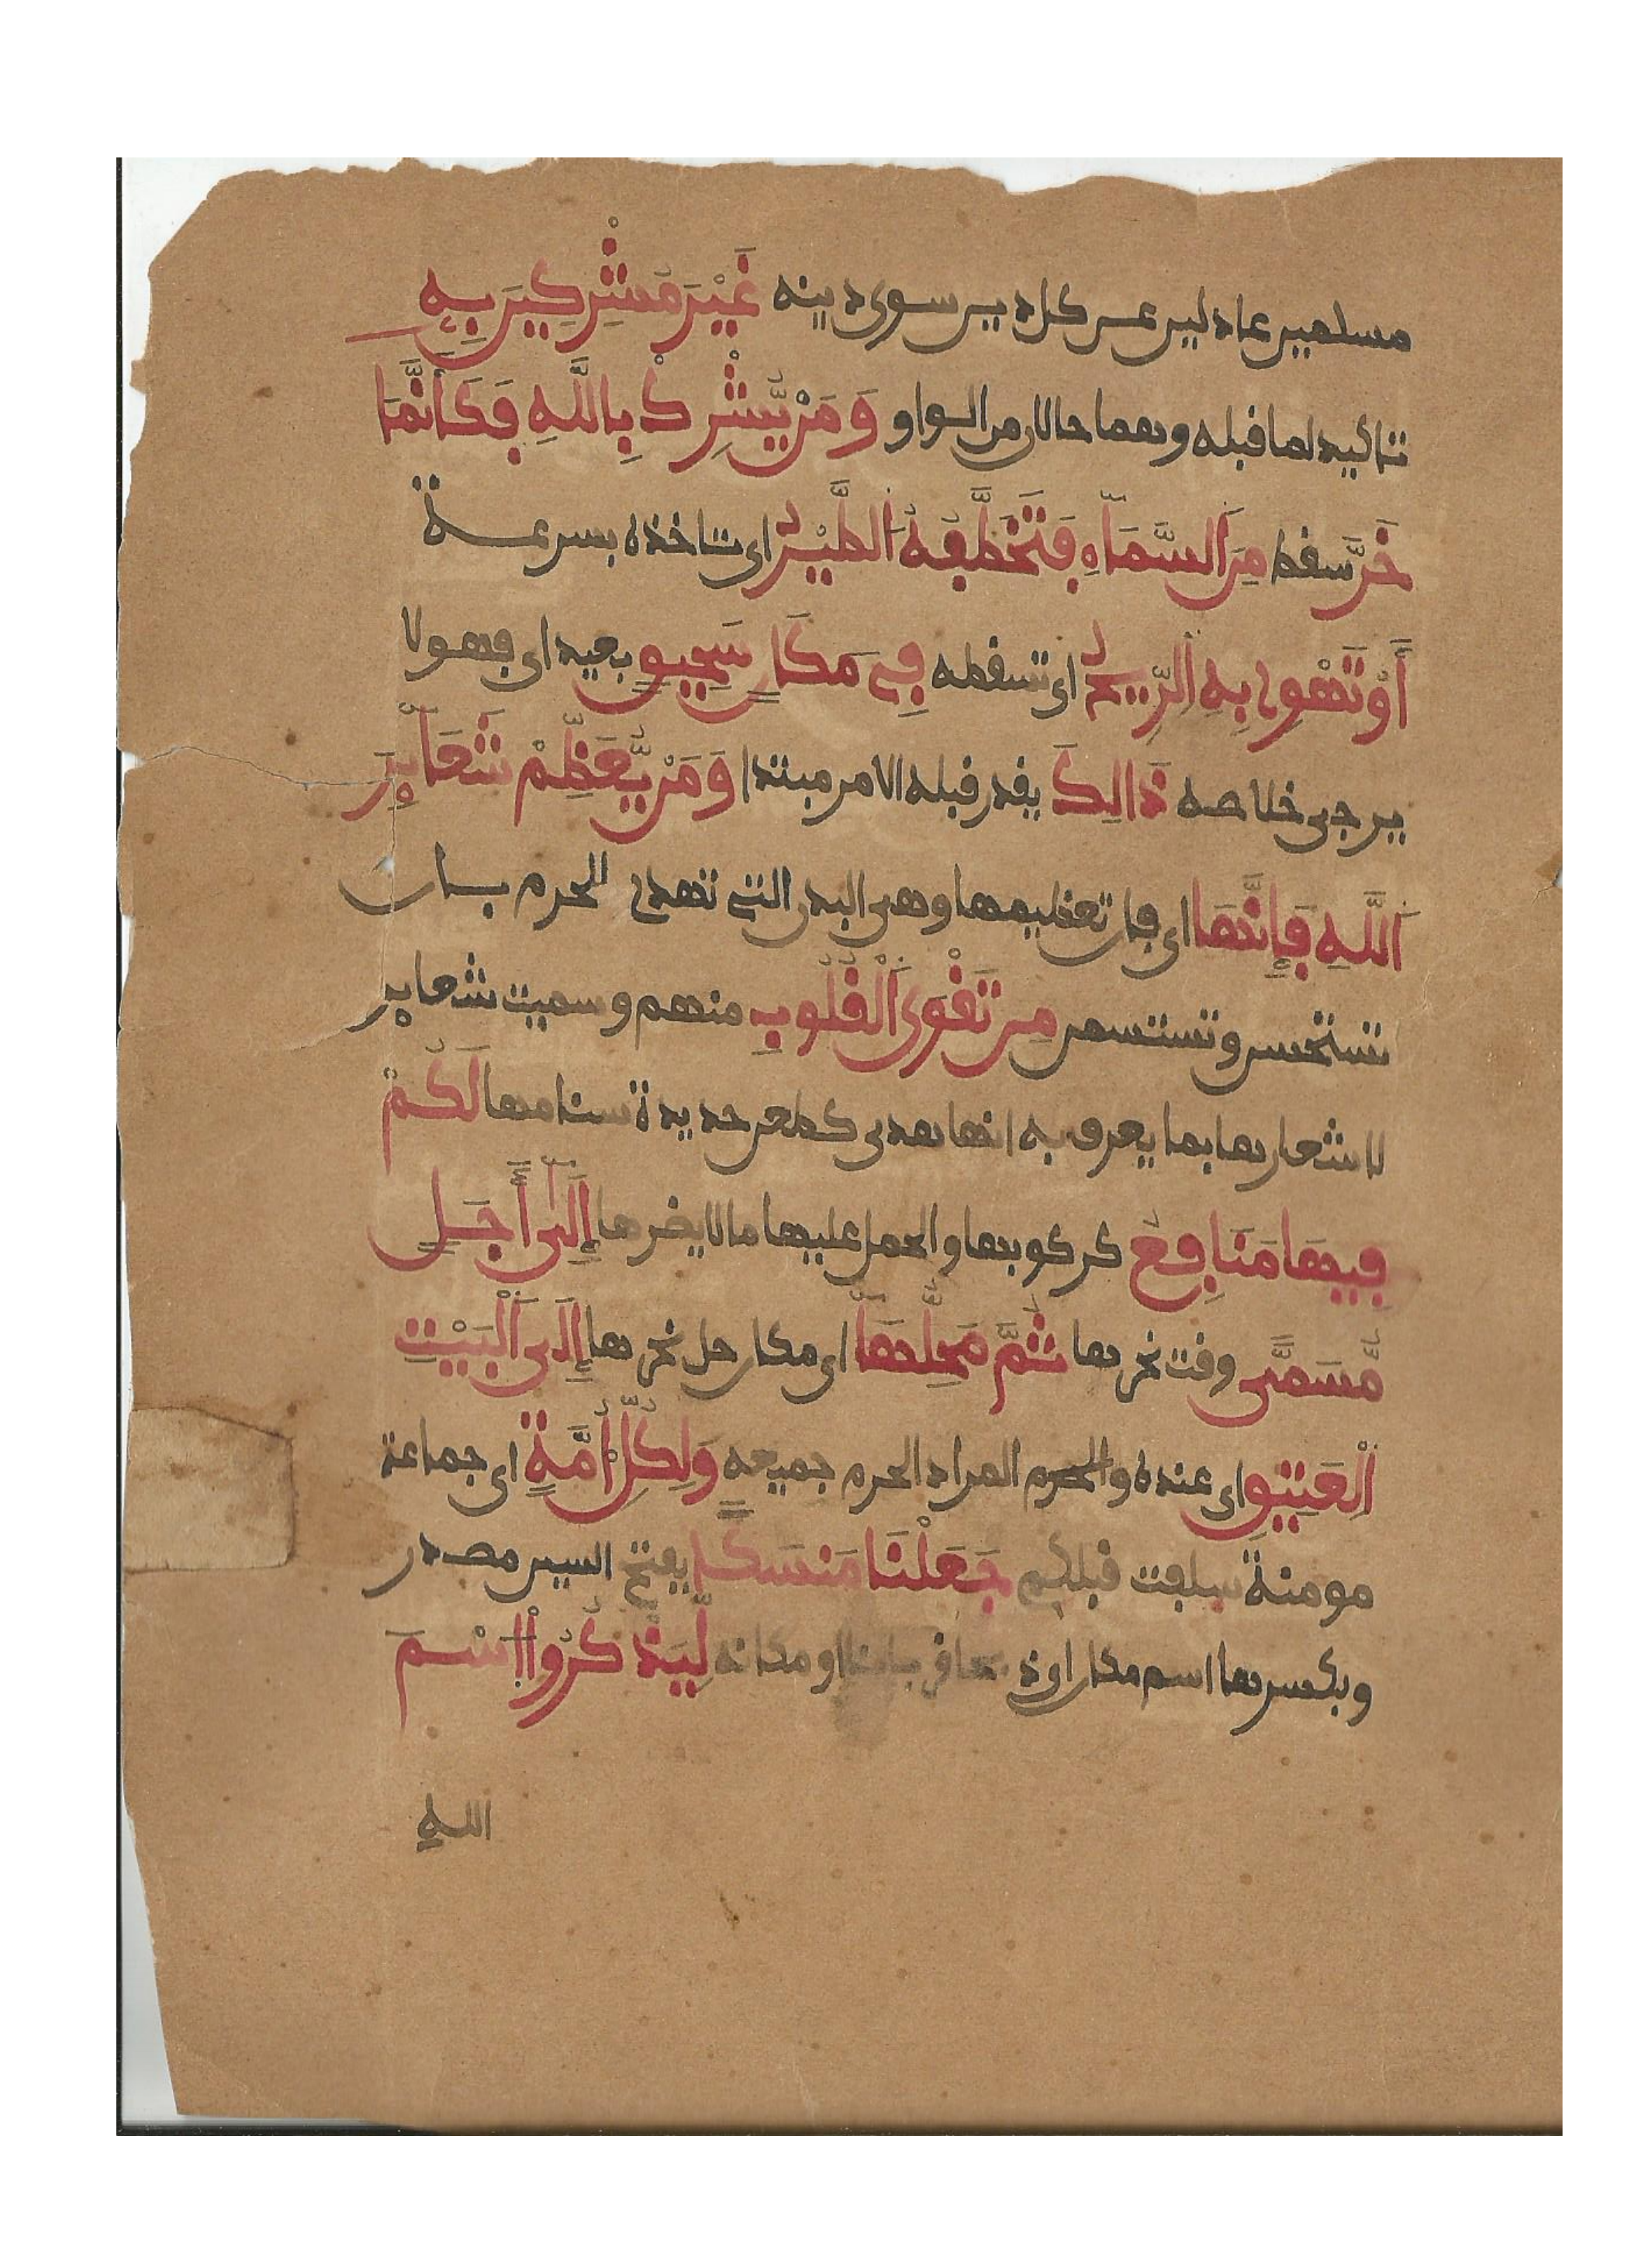 مسلمين عادلين عن كل دين سوى دينه غَيْرَ مُشْرِكِينَ بِهِ
تاكيد لما قبله وهما حالان من الواو وَمَنْ يُّشْرِكْ بِاللَّهِ فَكَأَنَّمَا
خَرَّ سقط مِنَ السَّمَآءِ فَتَخَطَّفُهُ الطَّيْرُ اى تاخذه بسرعة
أَوْ تَهْوِى بِهِ الرِّيحُ اى تسقطه فِى مَكَانٍ سَحِيقٍ بعيد اى فهو لا
يرجى خلاصه ذَالِكَ يقدر قبله الامر مبتدا وَمَنْ يُّعَظِّمْ شَعَآئِرَ
اللَّهِ فَإِنَّهَا اى فان تعظيمها وهى البدن التى تهدى للحرم بان
تستحسن وتستسمن مِن تَقْوَى الْقُلُوبِ منهم وسميت شعاير
لاشعارها بما يعرف به انها هدى كطعن حديدة سنامها لَكُمْ
فِيهَا مَنَافِعُ كركوبها والحمل عليها ما لا يضرها إِلَىٰ أَجَلٍ
مُّسَمًّى وقت نحرها ثُمَّ مَحِلُّهَا اى مكان حل نحرها إِلَى الْبَيْتِ
الْعَتِيقِ اى عنده والحرم المراد الحرم جميعه وَلِكُلِّ أُمَّةٍ اى جماعة
مومنة سلفت قبلكم جَعَلْنَا مَنسَكًا بفتح السين مصدر
وبكسرها اسم مكان اى او مكانه لِّيَذْكُرُوا اسْمَ
اللهِ